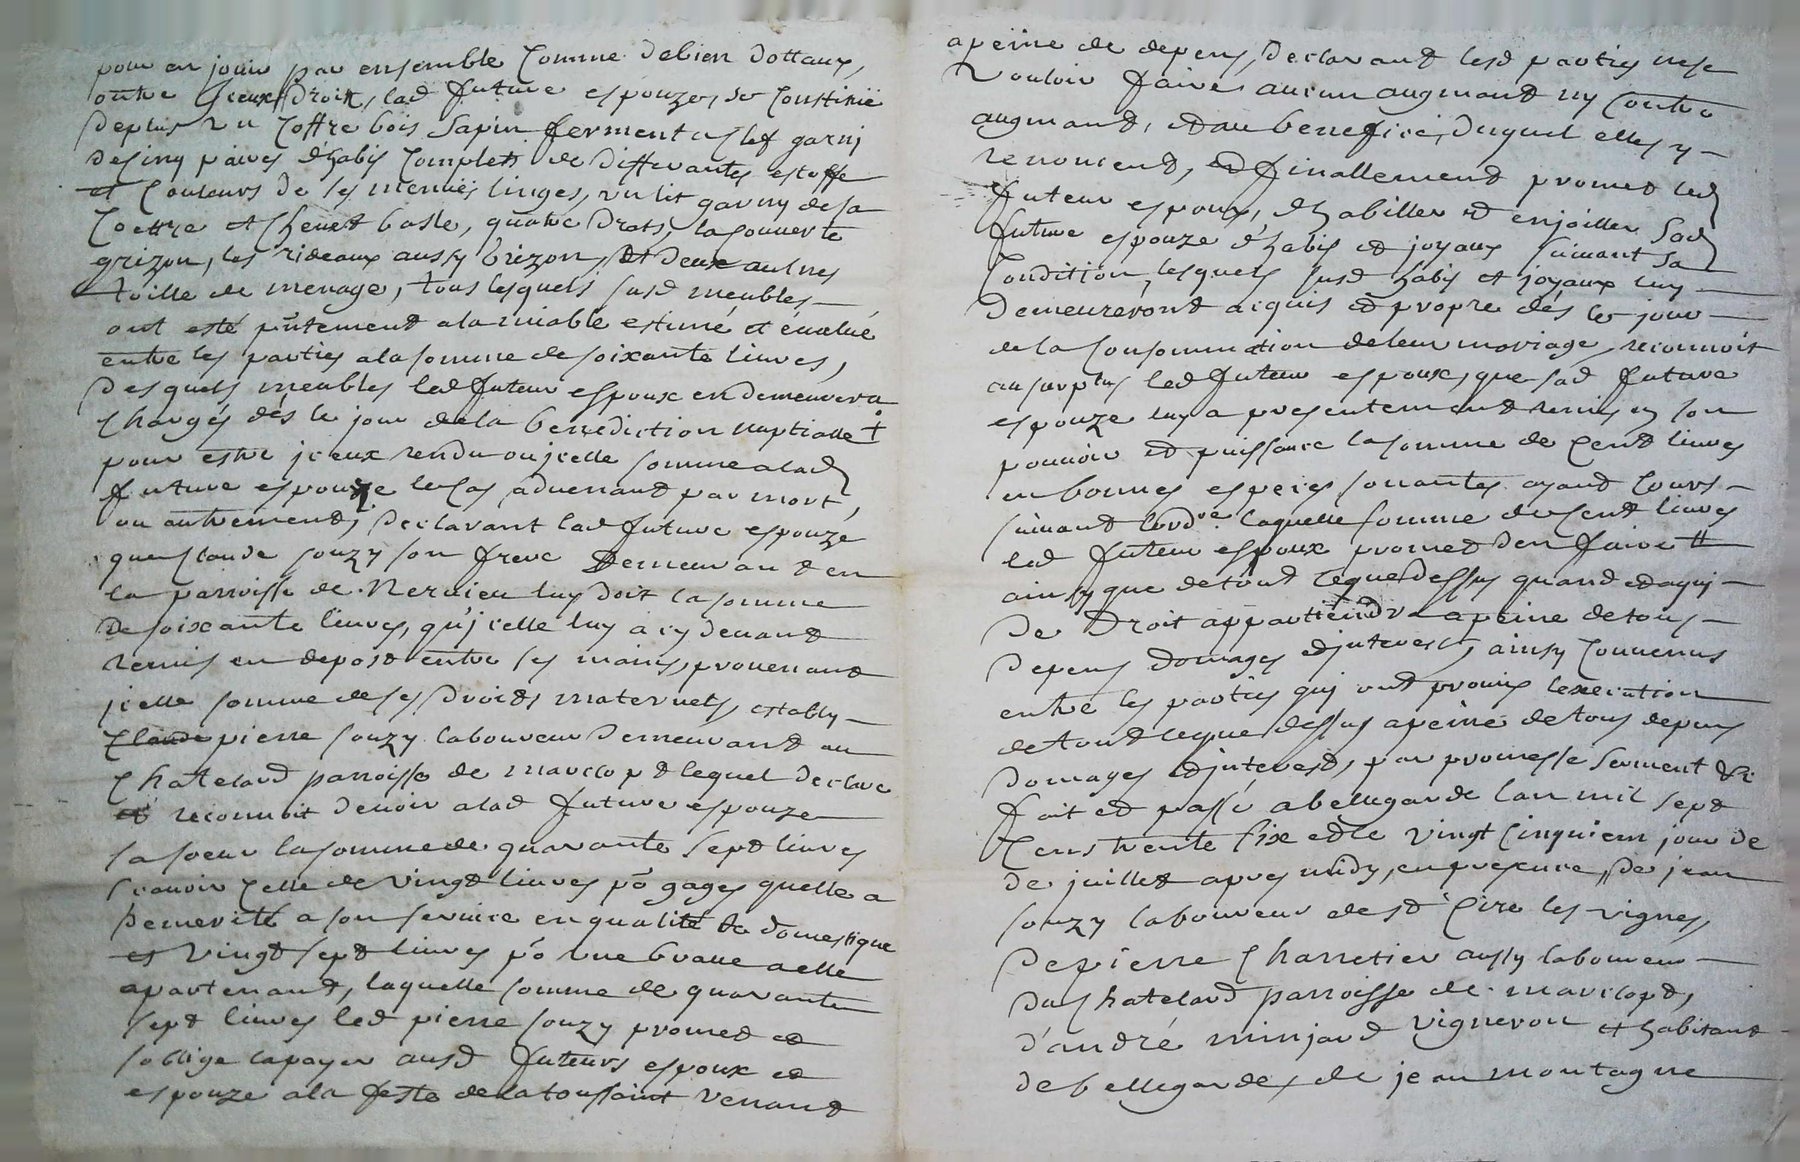 pour en jouir par ensemble Comme de bien dottaux,
outre Iceux Droits, lad future espouze, se Constitüe
deplus un Coffre bois Sapin ferment a clef garni
de cinq paires d'habis Complets de differantes estoffe
et Couleurs de ses menues linges, un lit garny de sa
Coettre et Chevet basle, quatre Drats, la couverte
grizon, les rideaux aussy grizon, et deux aulnes
toille de menage, tous lesquels susd meubles
ont esté pñtement a la miable estimé et évalué
entre les parties a la somme de soixante livres,
Desquels meubles led futeur espoux en demeurera
Chargés dés le jour de la benediction nuptialle +
pour estre iceux rendu ou icelle somme a lad
future espouze le Cas advenant par mort,
ou autrement, Declarant lad future espouze
que Claude souzy son frere Demeurant en
la parroisse de Nervieu luy doit la somme
de soixante livres, qu'icelle luy a cy devant
remis en depost entre ses mains, provenant
icelle somme de ses Droits maternels, establÿ
Claude pierre souzy laboureur Demeurant au
Chatelard parroisse de marclopt lequel declare
et reconnoit devoir a lad future espouze
sa soeur la somme de quarante sept livres
scavoir Celle de vingt livres põ gages quelle a
demerité a son service en qualité de domestique
et vingt sept livres põ une brave a elle
apartenant, laquelle somme de quarante
sept livres led pierre souzy promet et
soblige la payer ausd futeurs espoux et
espouze a la feste de la toussaint venant
a peine de depens, Declarant lesd parties ne se
vouloir faire aucun augmant ny Contre
augmant, et au benefice, duquel elles y
renoncent, et finallement promet led
futeur espoux, d'habiller et enjoiller sad
future espouze d'habis et joyaux suivant sa
Condition, lesquels susd habis et joyaux luy
Demeureront acquis et propre dés le jour
de la Consommation de leur mariage, reconnoit
au surplus led futeur espoux, que sad future
espouze luy a presentement remis en son
pouvoir et puissance la somme de Cent livres
en bonnes especes sonnantes ayant Cours
suivant lordce laquelle somme de Cent livres
led futeur espoux promet den faire #
ainsy que de tout ceque Dessus quand et a qui
De Droit appartiendra a peine de tous
depens domages et interest, ainsy Convenus
entre les parties qui ont promis lexecution
de tout ceque dessus a peine de tous depens
domages et interest, par promesse serment &c
fait et passé a bellegarde lan mil sept
Cens trente six et le vingt Cinquiem jour de
de juillet apres midy, en presence, de jean
souzy laboureur de st Cire les vignes,
De pierre Charretier aussy laboureur
du Chatelard parroisse de marclopt,
d'andré minjard vigneron et habitant
de bellegarde, de jean montagne